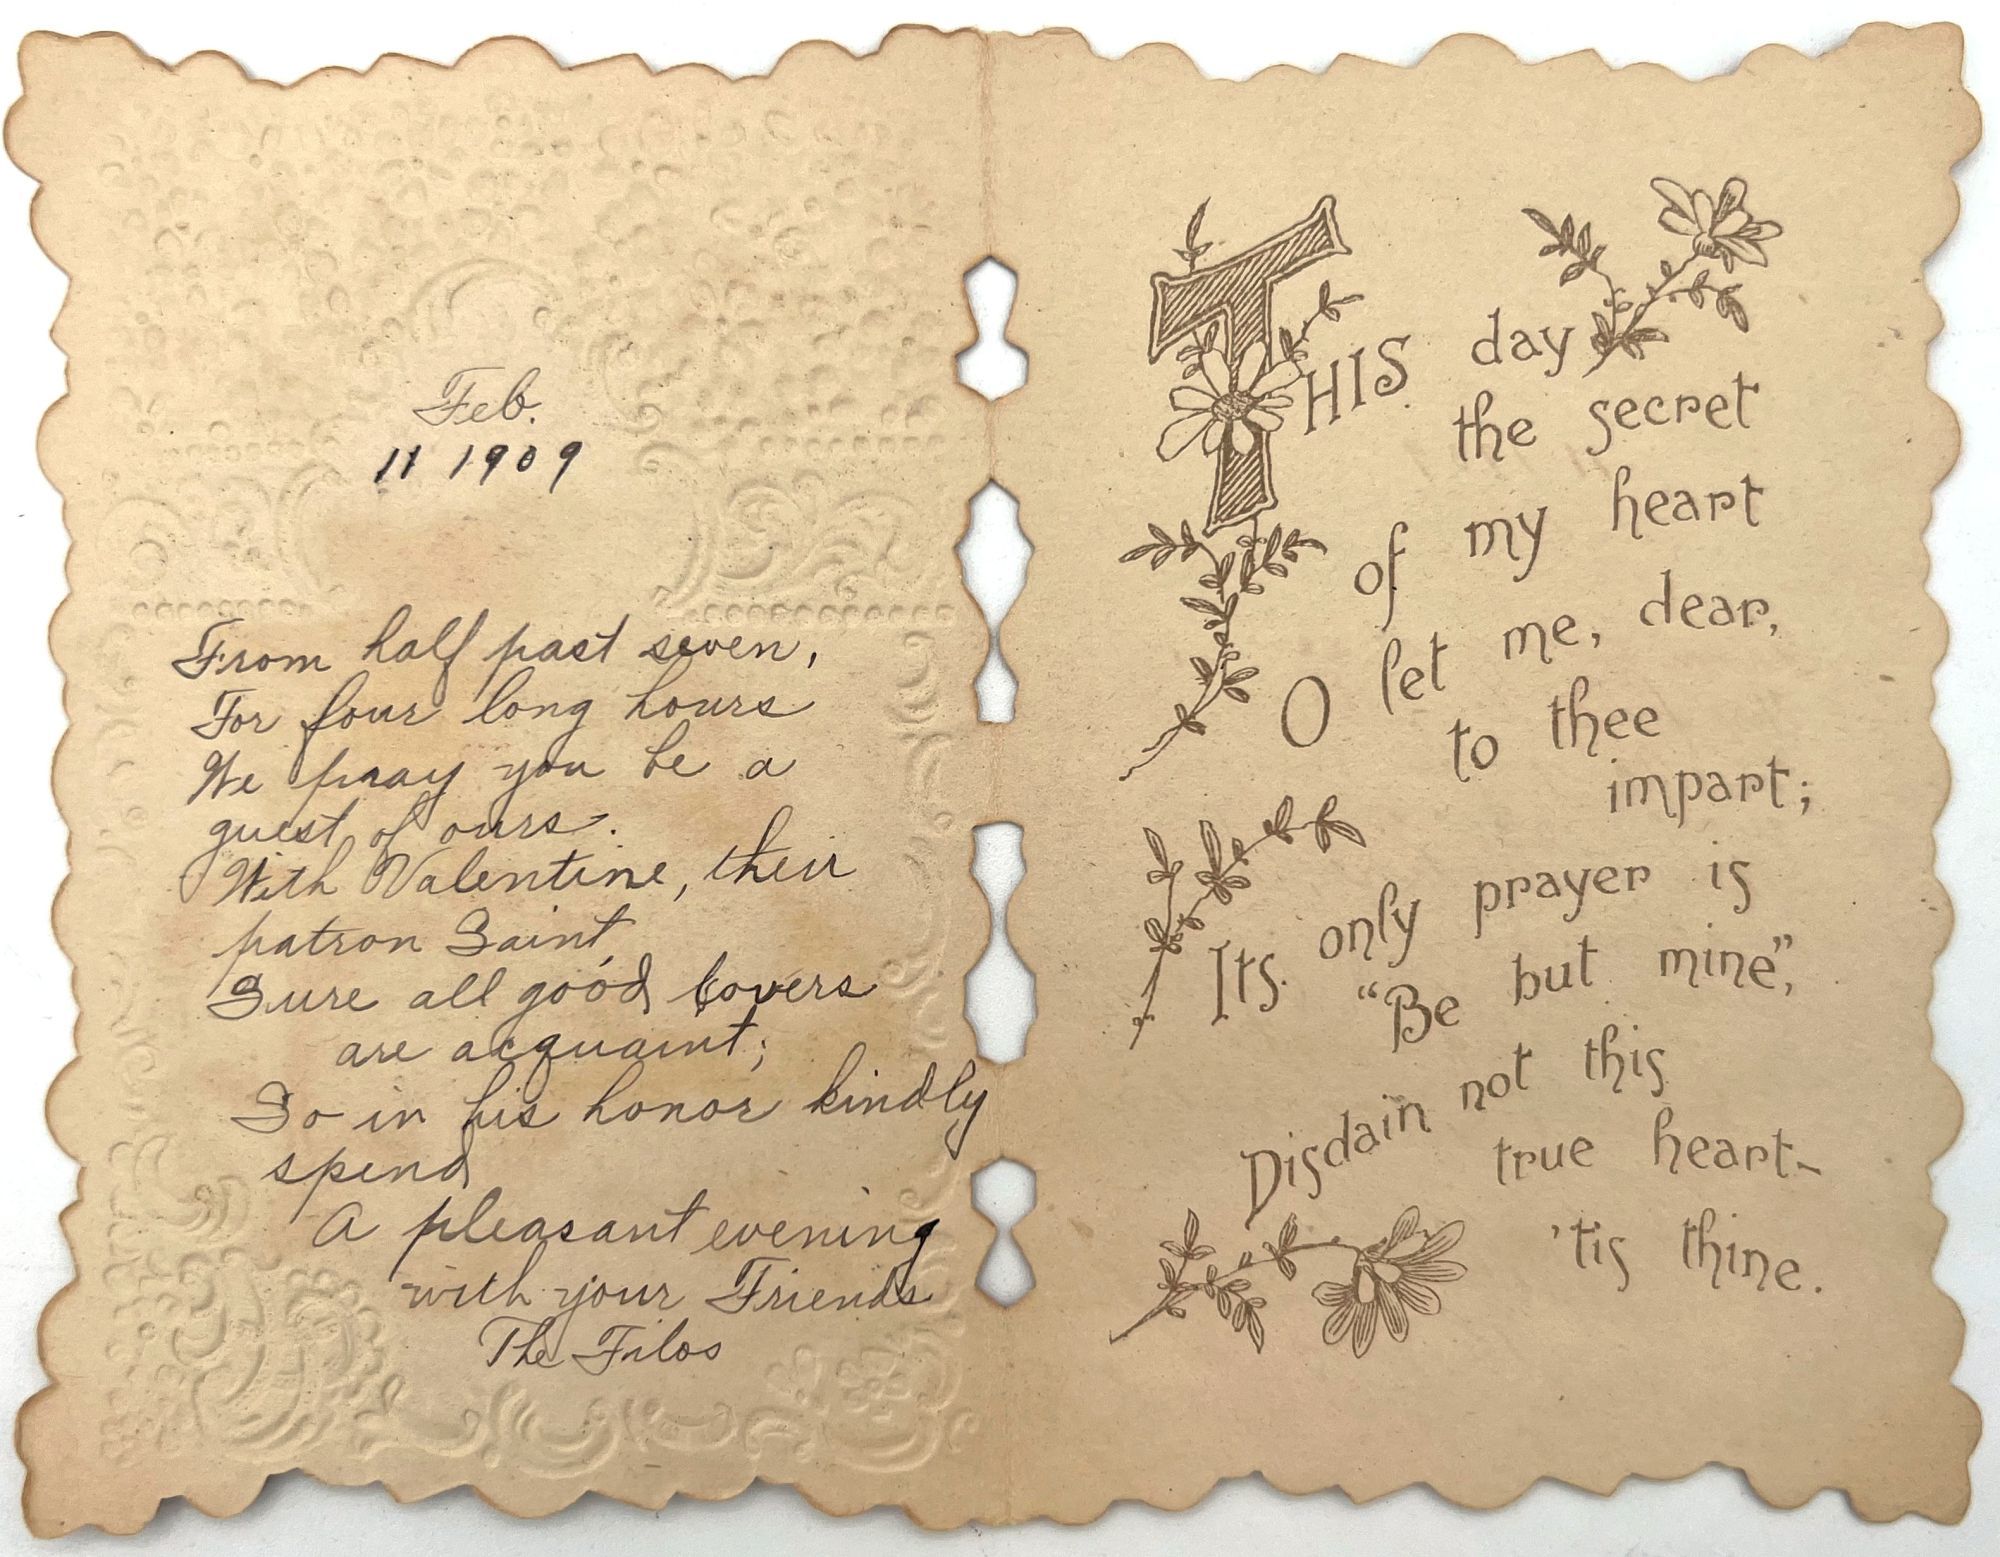 Feb.
11 1909
From half past seven,
For four long hours
We pray you be a
guest of ours.
With Valentine, their
patron Saint,
Sure all good lovers
are acquaint;
So in his honor kindly
spend
A pleasant evening
with your Friends
The Filos
THIS day
the secret
of my heart
O let me, dear,
to thee
impart;
Its only prayer is
"Be but mine",
Disdain not this
true heart-
'tis thine.